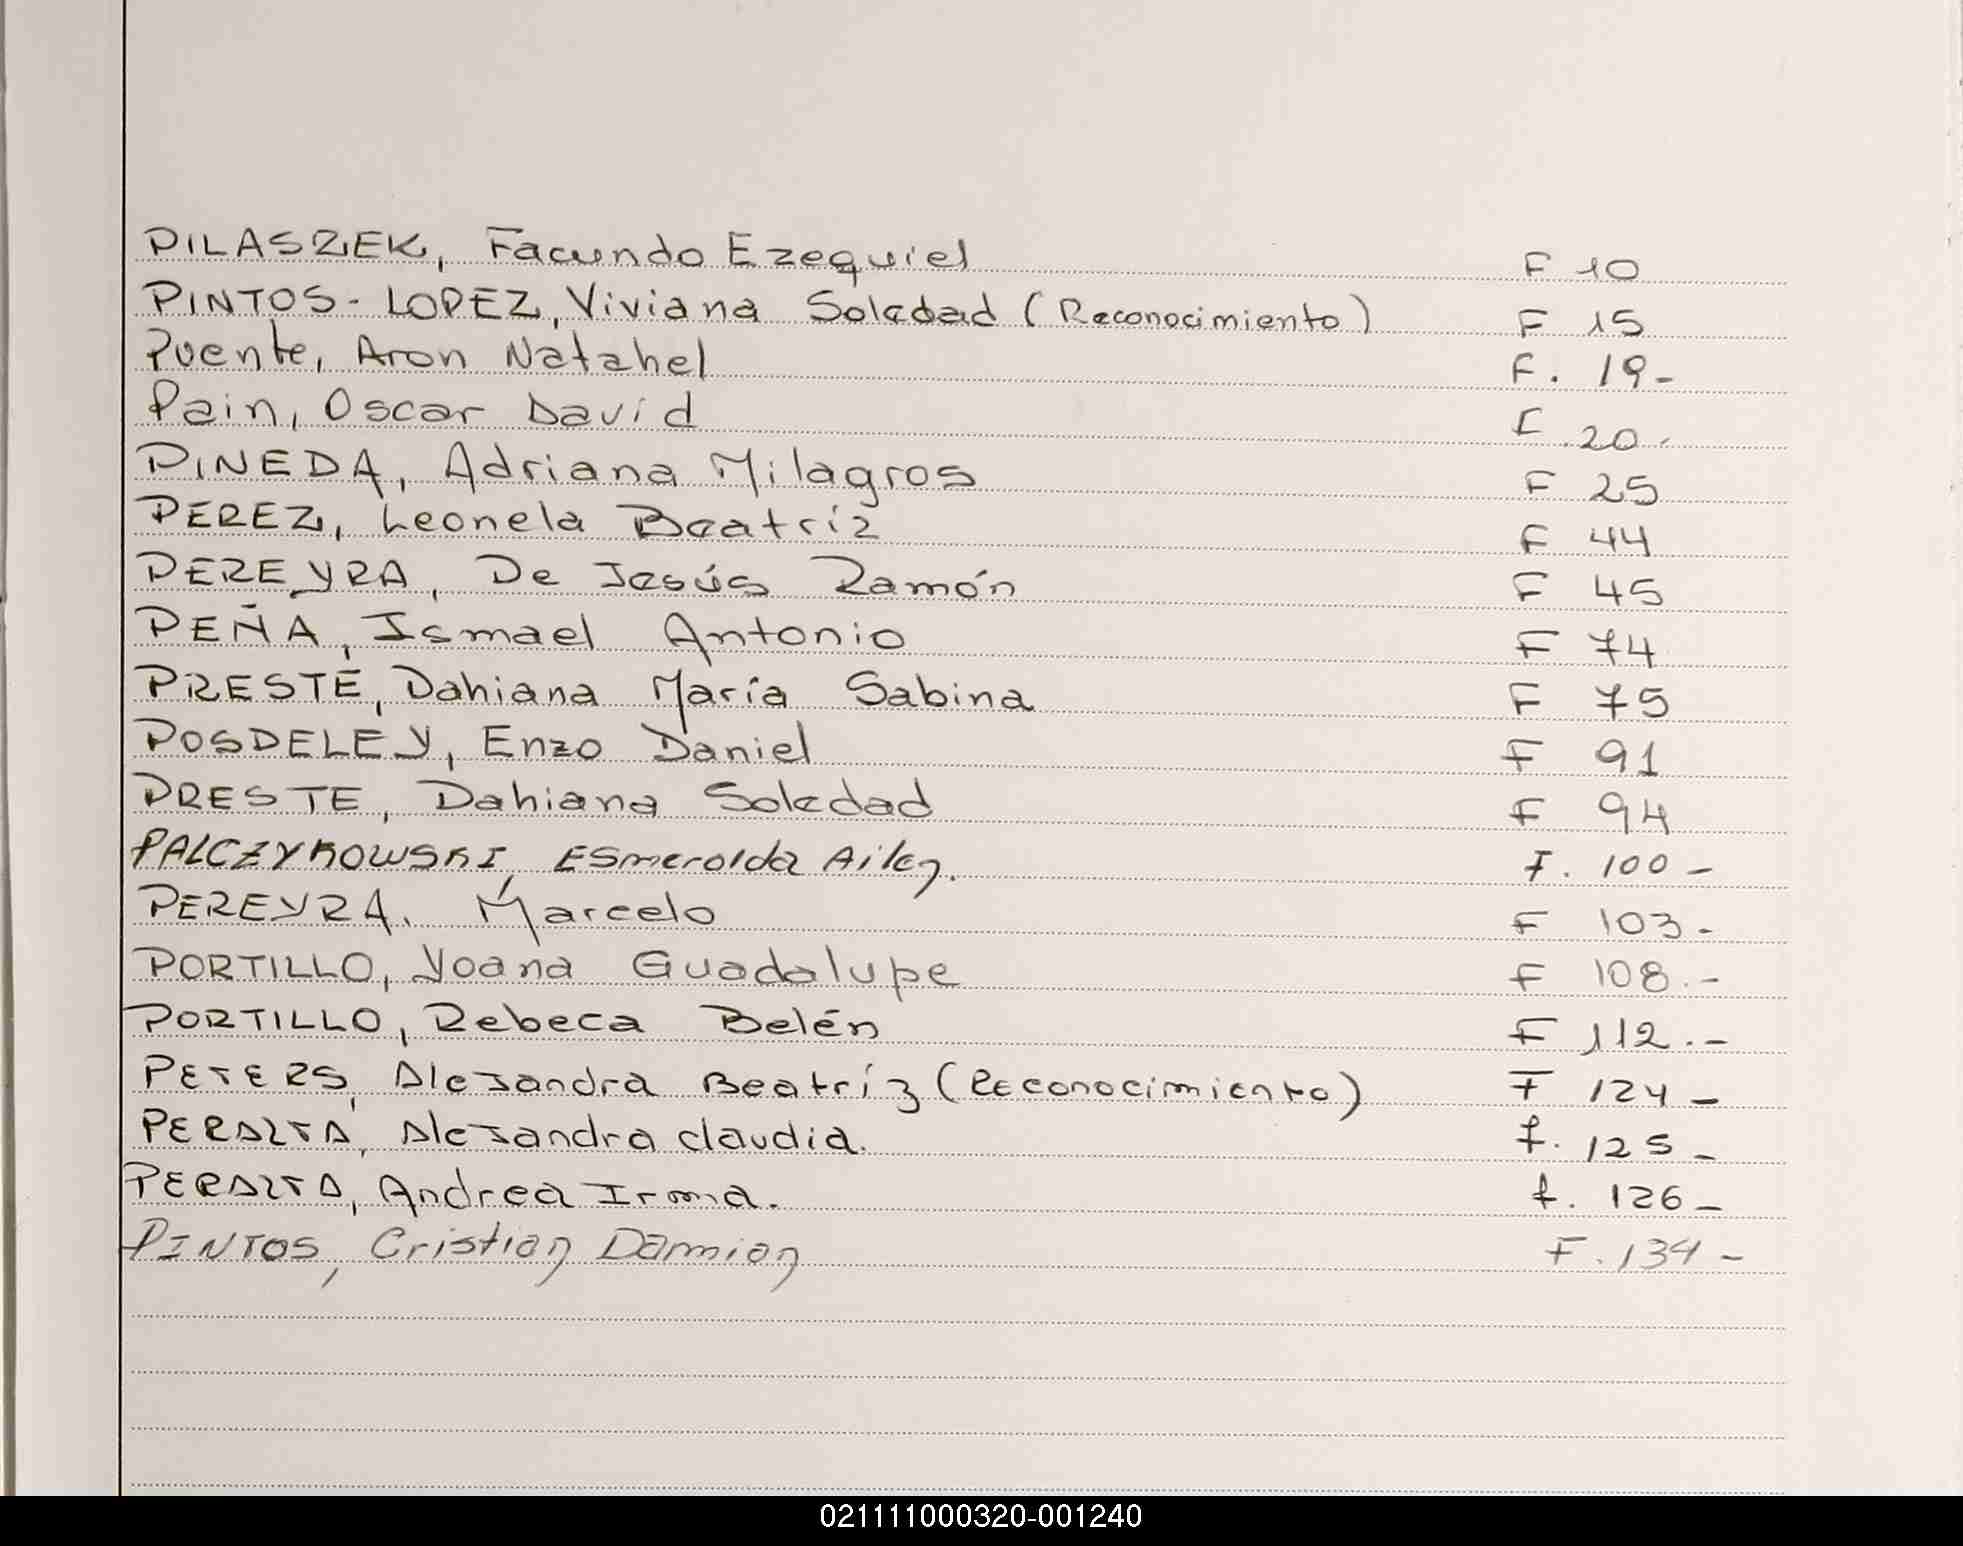 PILASZEK, Facundo Ezequiel F 10
PINTOS - LOPEZ, Viviana Soledad (Reconocimiento) F 15
Puente, Aron Natahel F. 19-
Pain, Oscar David F. 20.
PINEDA, Adriana Milagros F 25
PEREZ, Leonela Beatríz F 44
PEREYRA, De Jesús Ramón F 45
PEÑA, Ismael Antonio F 74
PRESTE, Dahiana María Sabina F 75
POSDELEY, Enzo Daniel F 91
PRESTE, Dahiana Soledad F 94
PALCZYKOWSKI, ESmeralda Ailen. F. 100 -
PEREYRA, Marcelo F 103.-
PORTILLO, Yoana Guadalupe F 108.-
PORTILLO, Rebeca Belén F 112.-
PETERS, Alejandra Beatríz (Reconocimiento) F 124 -
PERALTA, Alejandra claudia. f. 125 -
PERALTA, Andrea Irma. f. 126 -
PINTOS, Cristian Damian F. 134 -
021111000320-001240